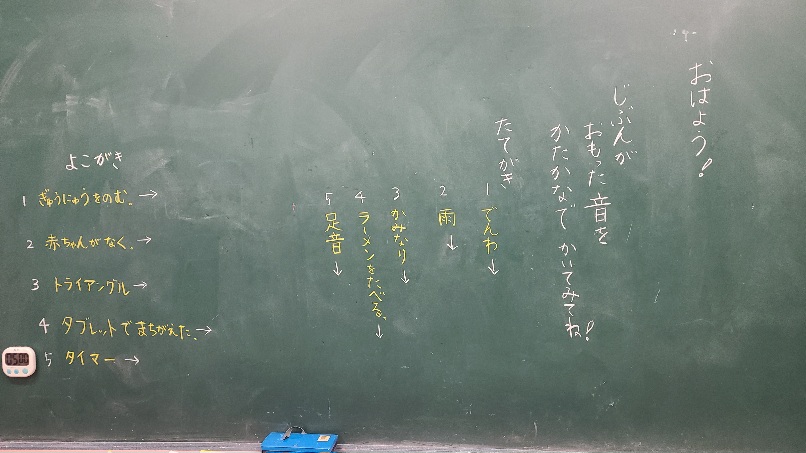 おはよう!
じぶんが
おもった音を
かたかなで かいてみてね!
たてがき
1 でんわ→
2 雨→
3 かみなり→
4 ラーメンをたべる。→
5 足音→
よこがき
1 ぎゅうにゅうをのむ。→
2 赤ちゃんがなく。→
3 トライアングル→
4 タブレットで まちがえた。→
5 タイマー→
0500